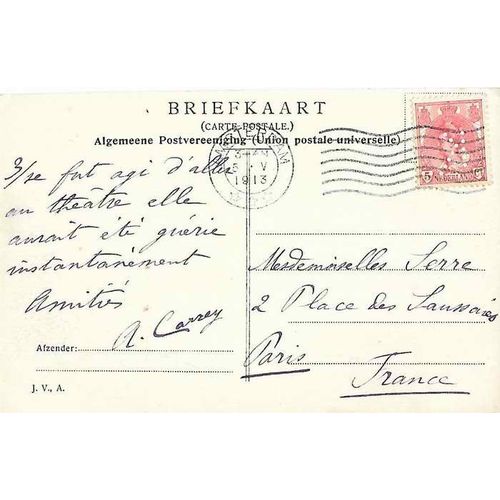 BRIEFKAART
(CARTE POSTALE.)
Algemeene Postvereeniging (Union postale universelle)
1913
5 NEDERLAND Ct
3/se fut agi d'aller
au théâtre elle
aurait été guérie
instantanément
Amitiés
A. Carrey
Afzender:
J. V., A.
Mesdemoiselles Serre
2 Place des Saussaies
Paris
France